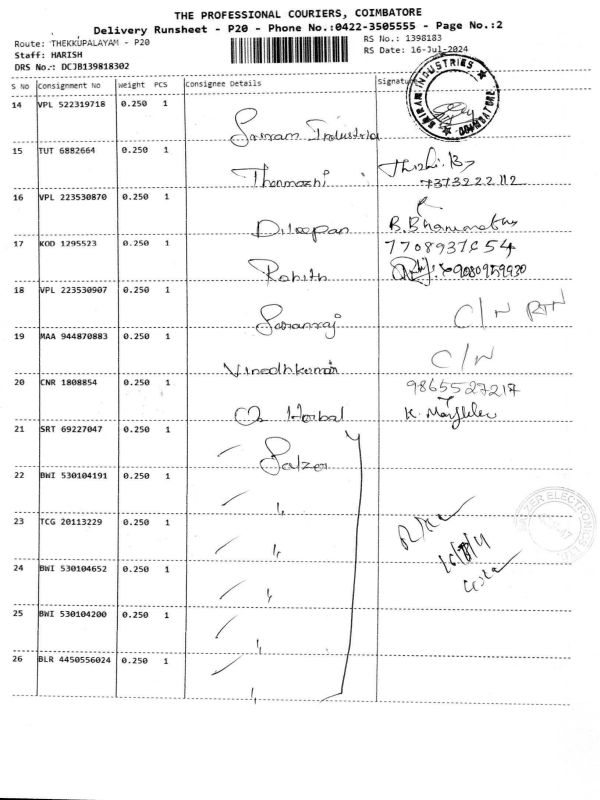 THE PROFESSIONAL COURIERS, COIMBATORE
Delivery Runsheet - P20 - Phone No.:0422-3505555 - Page No.:2
Route: THEKKUPALAYAM - P20
RS No.: 1398183
Staff: HARISH
RS Date: 16-Jul-2024
DRS No.: DCJB139818302
S No Consignment No Weight PCS Consignee Details Signature
SRIRAM INDUSTRIES
COIMBATORE
14 VPL 522319718 0.250 1
Sriram Industria
15 TUT 6882664 0.250 1
Thenmozhi
7373222112
16 VPL 223530870 0.250 1
Dileepan
17 KOD 1295523 0.250 1 7708937654
Rohith 9080959930
18 VPL 223530907 0.250 1
Saranraj C/N RTN
19 MAA 944870883 0.250 1
Vinodhkumar C/N
20 CNR 1808854 0.250 1 9865527217
Herbal K.
21 SRT 69227047 0.250 1
Salzer
22 BWI 530104191 0.250 1
"
23 TCG 20113229 0.250 1
"
24 BWI 530104652 0.250 1
"
25 BWI 530104200 0.250 1
"
26 BLR 4450556024 0.250 1
"
SALZER ELECTRONICS LTD